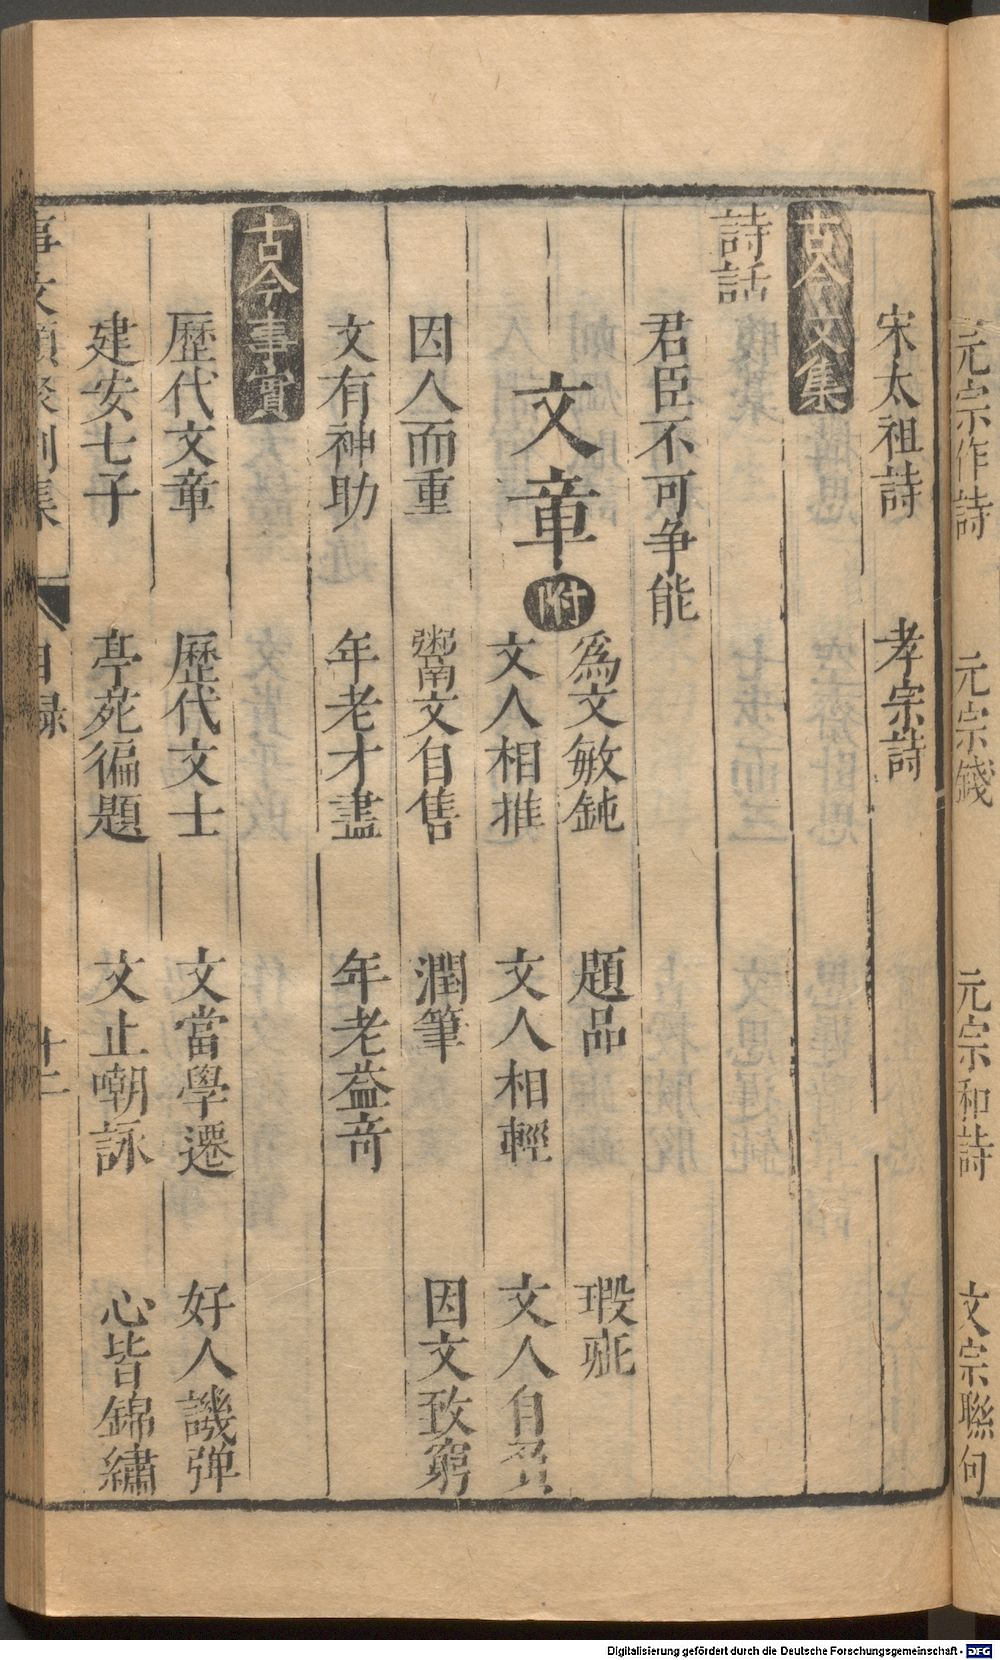 元宗作詩　元宗錢　元宗和詩　文宗聯句
宋太祖詩　孝宗詩
古今文集
詩話
君臣不可争能
爲文敏鈍　題品　瑕疵
文章附
文人相推　文人相輕　文人自負
因人而重　鬻文自售　潤筆　因文致窮
文有神助　年老才盡　年老益奇
古今事實
歷代文章　歷代文士　文當學遷　好人譏弹
建安七子　亭苑徧題　文止嘲詠　心皆錦繡
事文類聚別集　目録　十二
Digitalisierung gefördert durch die Deutsche Forschungsgemeinschaft - DFG